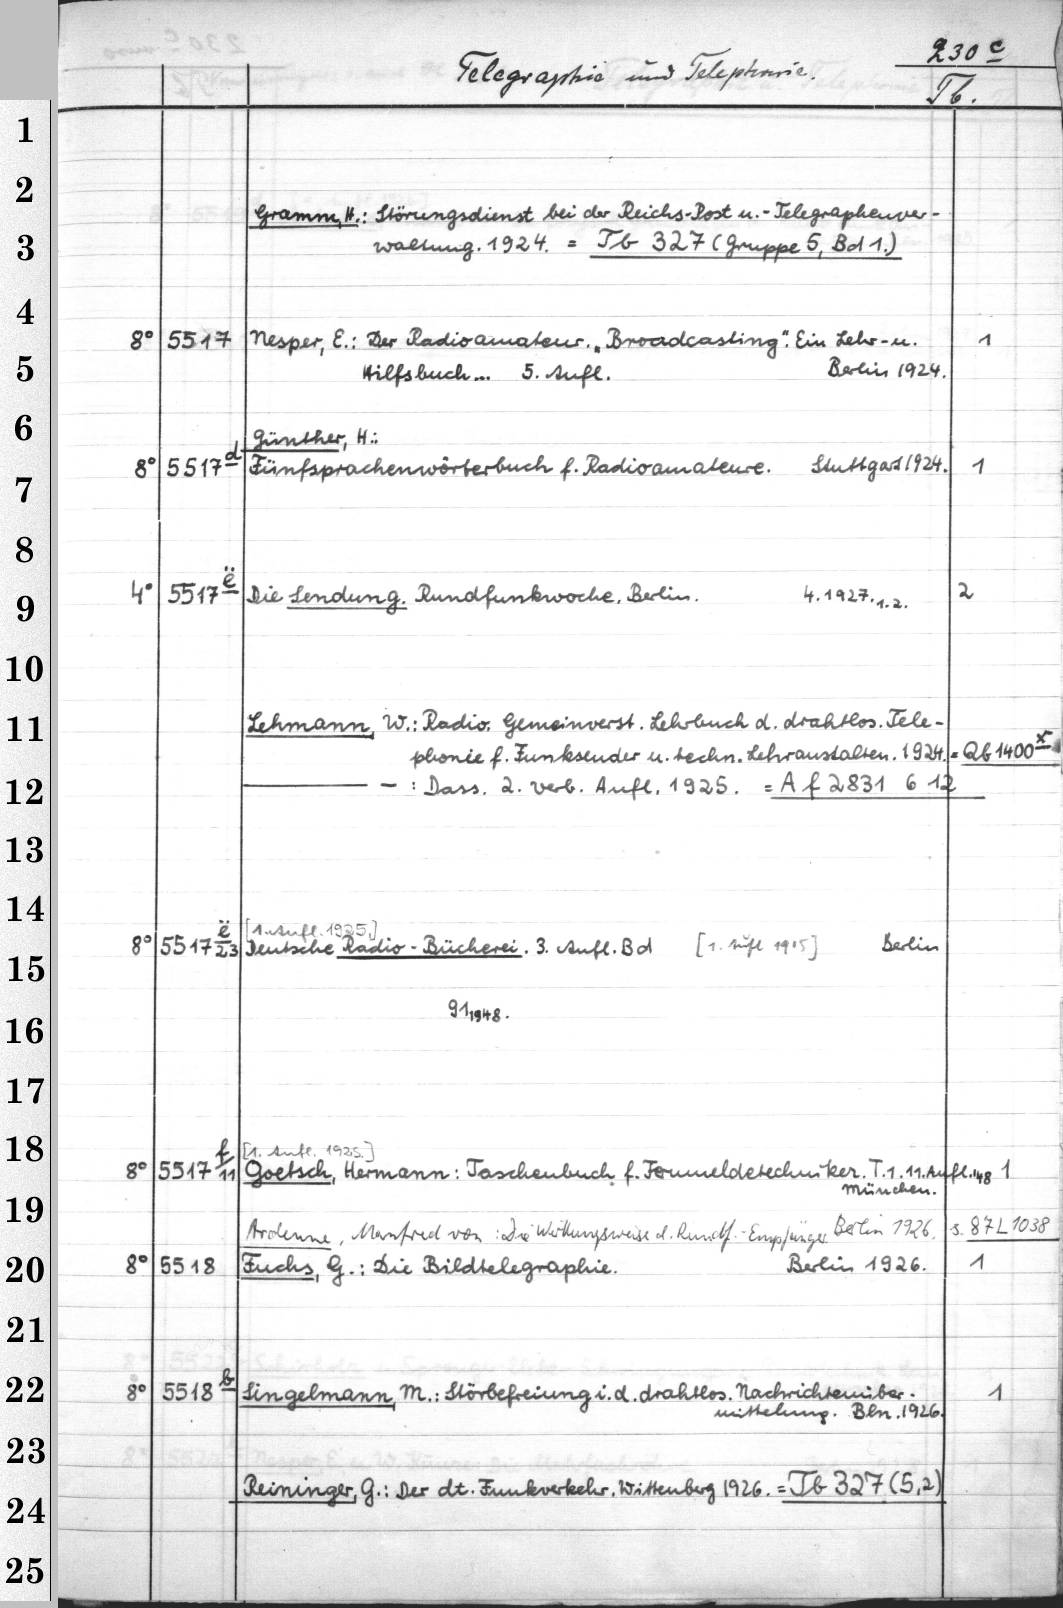 230 c
Telegraphie und Telephonie.
Tb.
1
2
Gramm, H.: Störungsdienst bei der Reichs-Post u.-Telegraphenver-
3
waltung. 1924. = Tb 327 (Gruppe 5, Bd 1.)
4
8° 5517 Nesper, E.: Der Radioamateur. „Broadcasting". Ein Lehr-u. 1
5
Hilfsbuch... 5. Aufl. Berlin 1924.
6
Günther, H.:
8° 5517 d Fünfsprachenwörterbuch f. Radioamateure. Stuttgart 1924. 1
7
8
4° 5517 ë Die Sendung. Rundfunkwoche. Berlin. 4.1927.1.2. 2
9
10
11
Lehmann, W.: Radio. Gemeinverst. Lehrbuch d. drahtlos. Tele-
phonie f. Funksender u. techn. Lehranstalten. 1924. = Qb 1400 x
12
— : Dass. 2. verb. Aufl. 1925. = Af 2831 6 12
13
14
[1. Aufl. 1925.]
8° 5517 ë/23 Deutsche Radio-Bücherei. 3. Aufl. Bd [1. Aufl 1915] Berlin
15
91 1948.
16
17
18
[1. Aufl. 1925.]
8° 5517 f/11 Goetsch, Hermann: Taschenbuch f. Fernmeldetechniker. T.1.11.Aufl. 148 1
München.
19
Ardenne, Manfred von: Die Wirkungsweise d. Rundf.-Empfänger Berlin 1926. s. 87 L 1038
20
8° 5518 Fuchs, G.: Die Bildtelegraphie. Berlin 1926. 1
21
22
8° 5518 b Singelmann, M.: Störbefreiung i. d. drahtlos. Nachrichtenüber- 1
mittelung. Bln. 1926.
23
Reininger, G.: Der dt. Funkverkehr. Wittenberg 1926. = Tb 327 (5,2)
24
25